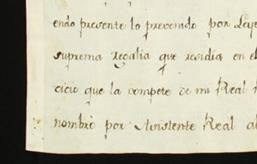 endo presente lo prevenido por
suprema regalia que residia en el
cicio que la compete de mi Real
nombrò por Asistente Real al